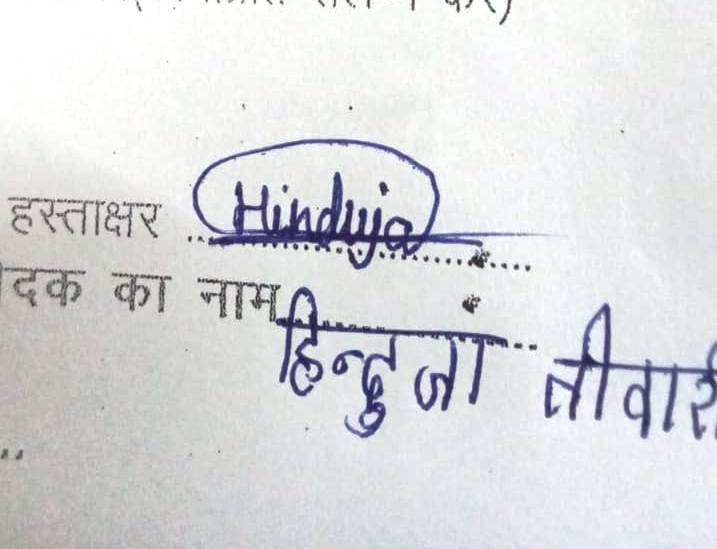 हस्ताक्षर Hinduja
दक का नाम हिन्दुजा तीवारी